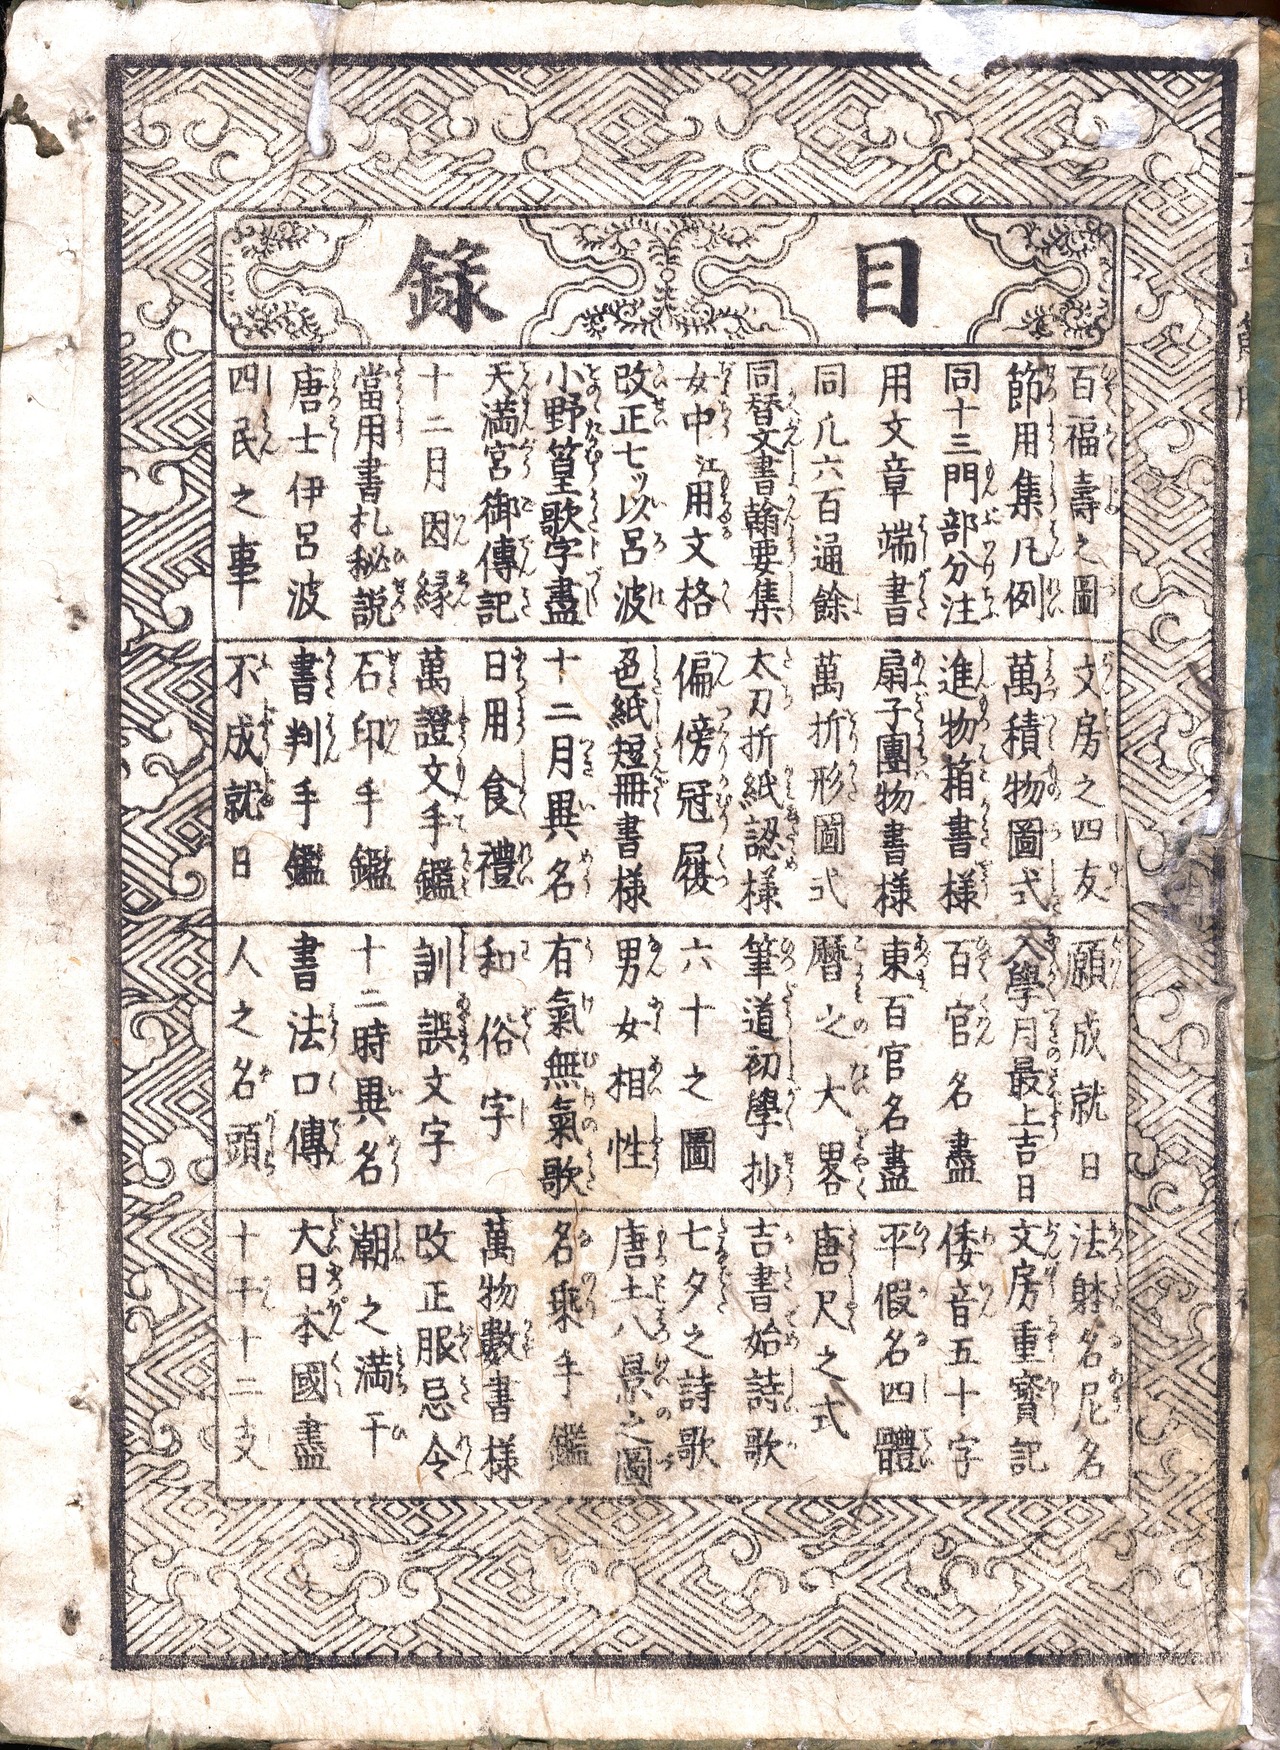 目録
百福壽之圖
節用集凡例
同十三門部分注
用文章端書
同凢六百通餘
同替文書翰要集
女中江用文格
改正七ツ以呂波
小野篁歌字盡
天満宮御傳記
十二月因縁
當用書札秘説
唐士伊呂波
四民之事
文房之四友
萬積物圖式
進物箱書様
扇子團物書様
萬折形圖式
太刀折紙認様
偏傍冠履
色紙短冊書様
十二月異名
日用食禮
萬證文手鑑
石印手鑑
書判手鑑
不成就日
願成就日
入學月最上吉日
百官名盡
東百官名盡
暦之大畧
筆道初學抄
六十之圖
男女相性
有氣無氣歌
和俗字
訓誤文字
十二時異名
書法口傳
人之名頭
法躰名尼名
文房重寳記
倭音五十字
平假名四體
唐尺之式
吉書始詩歌
七夕之詩歌
唐土八景之圖
名乗手鑑
萬物數書様
改正服忌令
潮之満干
大日本國盡
十干十二支